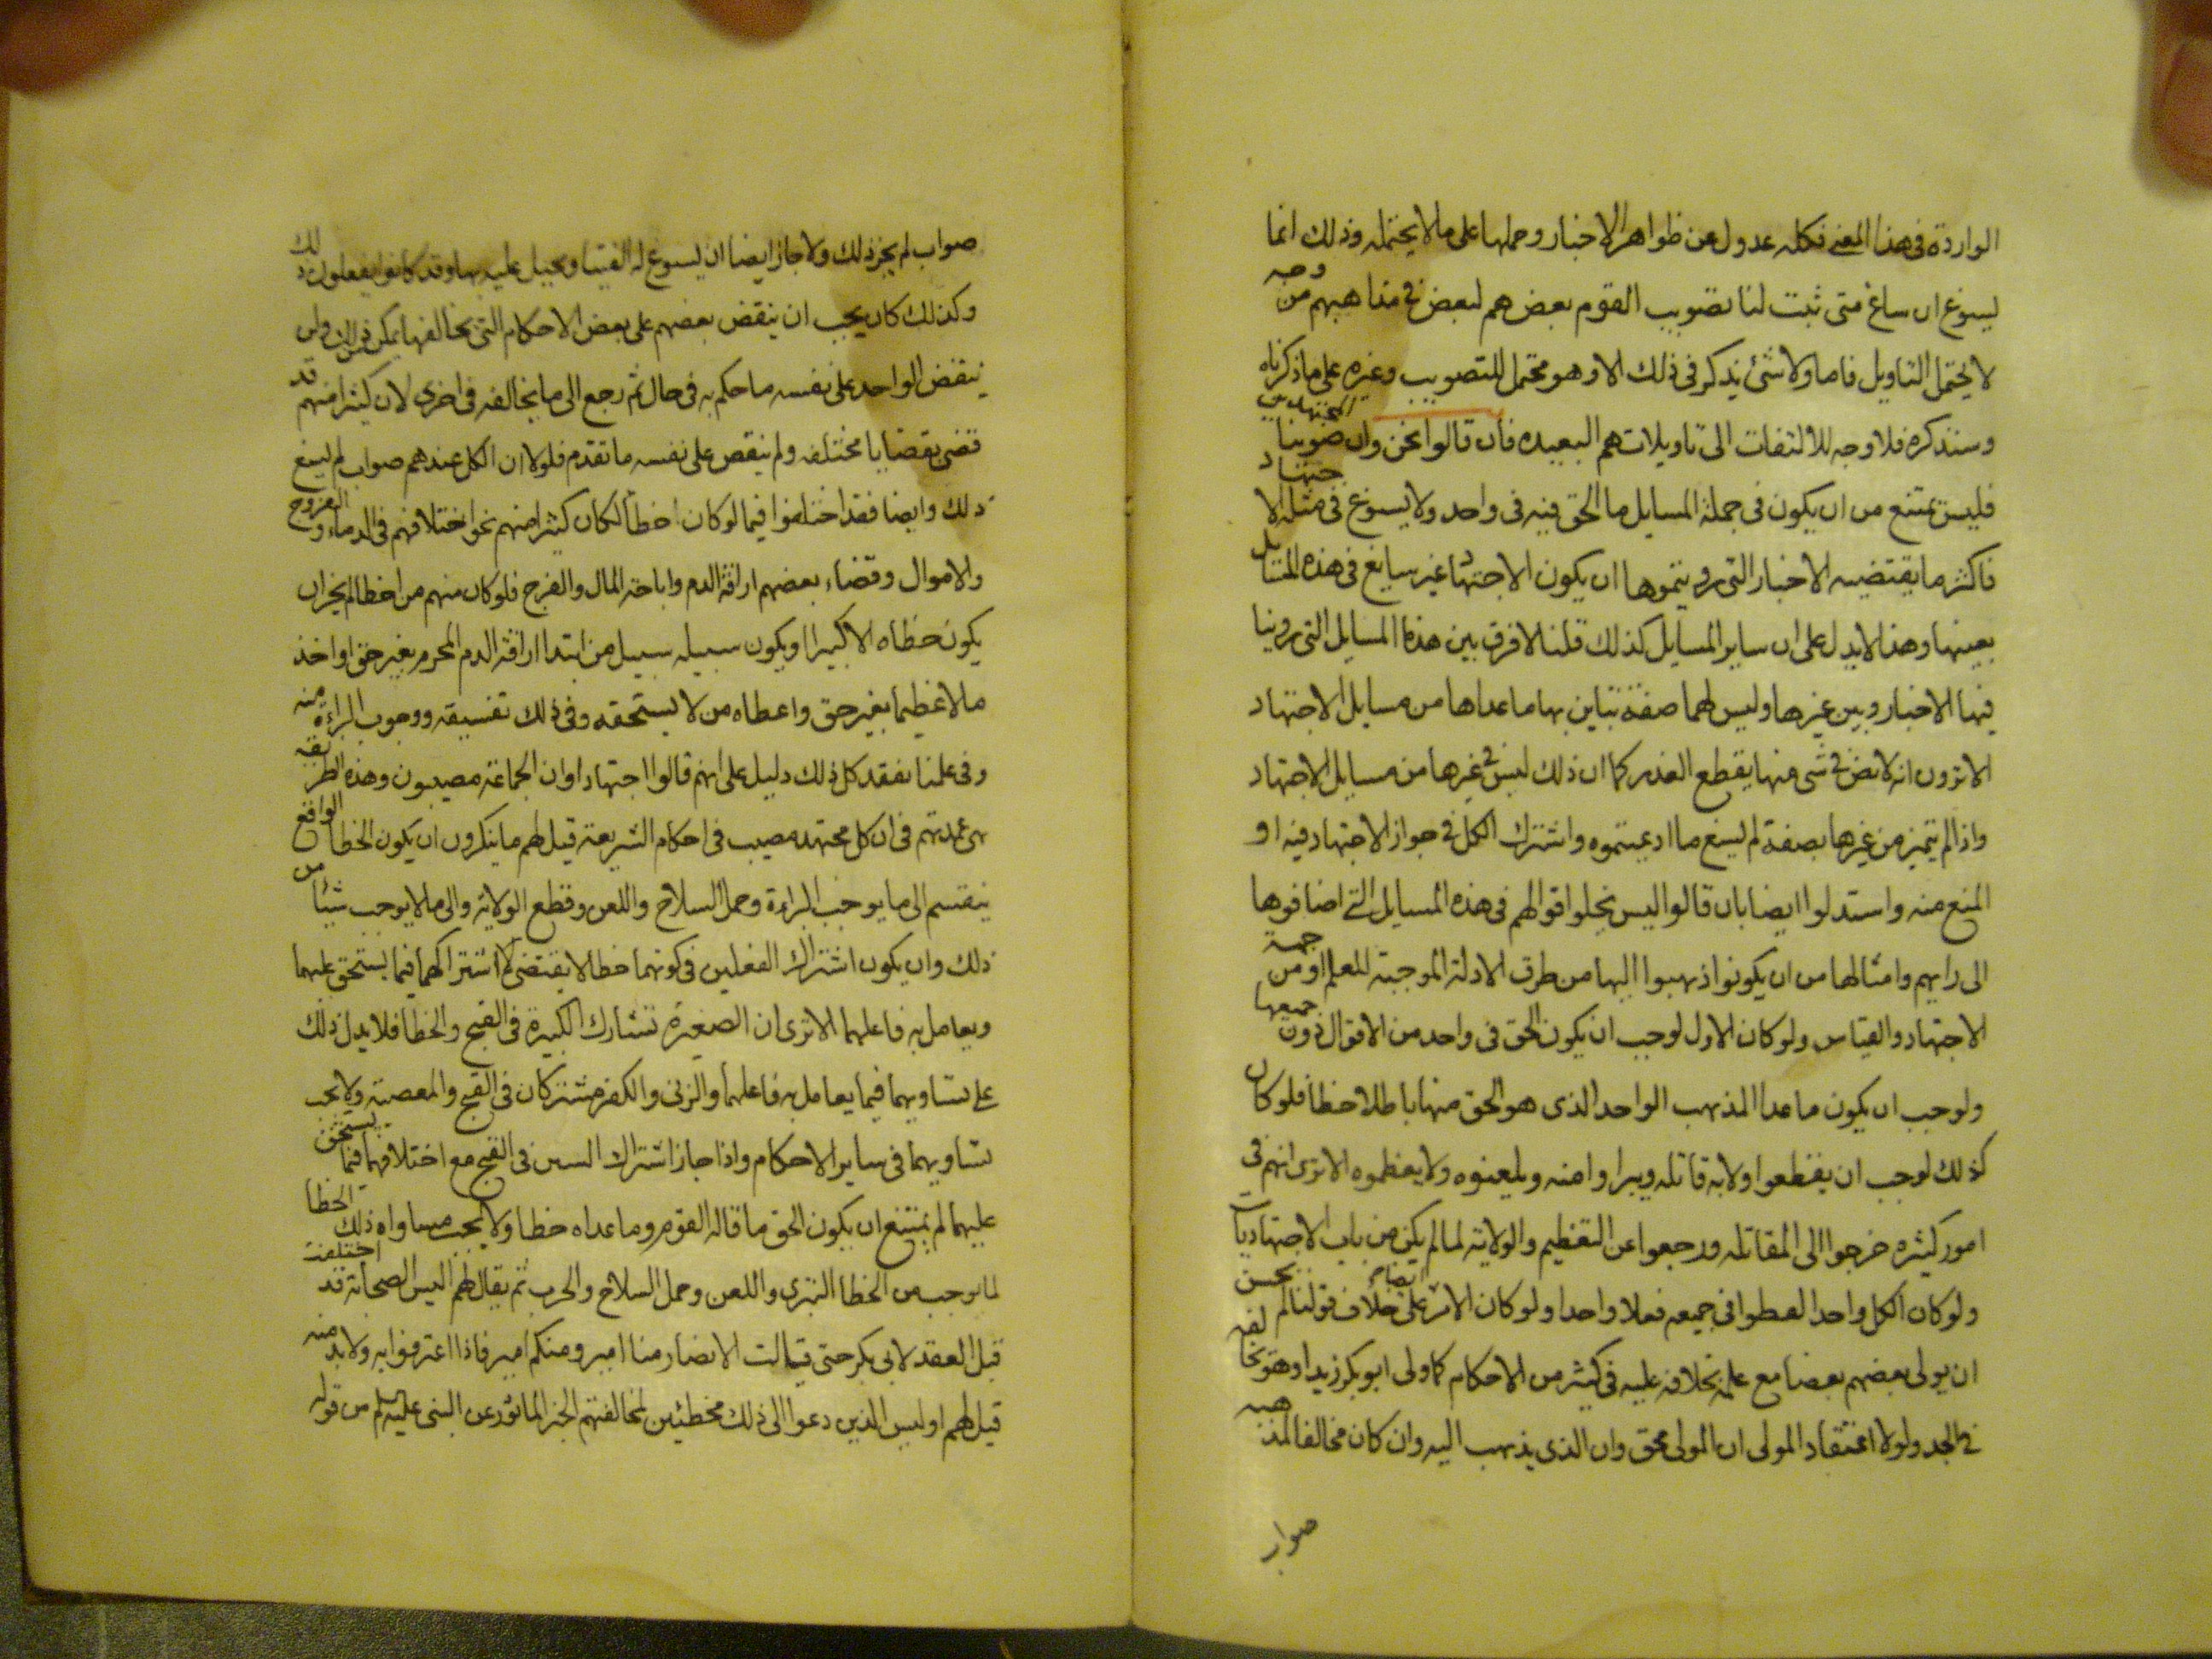 الواردة فى هذا المعنى فكله عدول عن ظواهر الاخبار وحملها على ما لا يحتمله وذلك انما
يسوغ ان ساغ متى ثبت لنا تصويب القوم بعضهم لبعض فى مذاهبهم من وجه
لا يحتمل التاويل فاما ولا شئ يذكر فى ذلك الا وهو محتمل للتصويب وغيره على ما ذكرناه
وسنذكره فلا وجه للالتفات الى تاويلاتهم البعيده فان قالوا نحن وان صوبنا المجتهدين
فليس يمتنع من ان يكون فى جملة المسايل ما الحق فيه فى واحد ولا يسوغ فى مثله الاجتهاد
فاكثر ما يقتضيه الاخبار التى رويتموها ان يكون الاجتهاد غير سايغ فى هذه المسايل
بعينها وهذا لا يدل على ان ساير المسايل كذلك قلنا لا فرق بين هذه المسايل التى روينا
فيها الاخبار وبين غيرها وليس لهما صفة تباين بها ما عداها من مسايل الاجتهاد
الا ترون انه لا نص فى شى منها يقطع العذر كما ان ذلك ليس فى غيرها من مسايل الاجتهاد
واذا لم يتميز من غيرها بصفة لم يسغ ما ادعيتموه واشترك الكل فى جواز الاجتهاد فيه او
المنع منه واستدلوا ايضا بان قالوا ليس يخلوا قوالهم فى هذه المسايل التى اضافوها
الى رايهم وامثالها من ان يكونوا ذهبوا اليها من طرق الادلة الموجبة للعلم او من جهة
الاجتهاد والقياس ولو كان الاول لوجب ان يكون الحق فى واحد من الاقوال دون جميعها
ولوجب ان يكون ما عدا المذهب الواحد الذى هو الحق منها باطلا خطا فلو كان
كذلك لوجب ان يقطعوا ولاية قائله ويبراوا منه ويلعنوه ولا يعظموه الا ترى انهم فى
امور كثيره خرجوا الى المقاتله ورجعوا عن التعظيم والولاية لما لم يكن من باب الاجتهاديات
ولو كان الكل واحدا لفعلوا فى جميعه فعلا واحدا ولو كان الامر ايضا على خلاف قولنا لم يحسن
ان يولى بعضهم بعضا مع علمه بخلافه عليه فى كثير من الاحكام كما ولى ابو بكر زيدا وهو يخالفه
فى الجد ولولا اعتقاد المولى ان المولى محق وان الذى يذهب اليه وان كان مخالفا لمذهبه
صواب
صواب لم يجز ذلك ولا جاز ايضا ان يسوغ له الفتيا ويحيل عليه بها وقد كانوا يفعلون ذلك
وكذلك كان يجب ان ينقض بعضهم على بعض الاحكام التى يخالفها يمكن من ذلك وان
ينقض الواحد على نفسه ما حكم به فى حال ثم رجع الى ما يخالفه فى اخرى لان كثيرا منهم قد
قضى بقضايا مختلفه ولم ينقض على نفسه ما تقدم فلولا ان الكل عندهم صواب لم يسغ
ذلك وايضا فقد اختلفوا فيما لو كان اخطا لكان كثيرا منهم نحو اختلافهم فى الدماء والفروج
والاموال وقضاء بعضهم اراقة الدم واباحة المال والفرج فلو كان منهم من اخطا لم يجز ان
يكون خطاه الا كبيرا ويكون سبيله سبيل من ابتدا اراقة الدم المحرم بغير حق او اخذ
مالا عظيما بغير حق واعطاه من لا يستحقه وفى ذلك تفسيقه ووجوب البراءة منه
وفى علمنا بفقد كل ذلك دليل على انهم قالوا اجتهادا وان الجماعة مصيبون وهذه الطريقة
هى عمدتهم فى ان كل مجتهد مصيب فى احكام الشريعة قيل لهم ما ينكرون ان يكون الخطا الواقع
ينقسم الى ما يوجب البراءة وحمل السلاح واللعن وقطع الولاية والى ما لا يوجب شيئا من
ذلك وان يكون اشتراك الفعلين فى كونهما خطا لا يقتضى اشتراكهما فيما يستحق عليهما
ويعامل به فاعلهما الا ترى ان الصغيرة تشارك الكبيرة فى القبح والخطا فلا يدل ذلك
على تساويهما فيما يعامل به فاعلهما والزنى والكفر مشتركان فى القبح والمعصية ولا يجب
تساويهما فى ساير الاحكام واذا جاز اشتراك السين فى القبح مع اختلافهما فيما يستحق
عليهما لم يمتنع ان يكون الحق ما قاله القوم وما عداه خطا ولا يجب مساواه ذلك الخطا
لما يوجب من الخطا التبرى واللعن وحمل السلاح والحرب ثم يقال لهم اليس الصحابة قد اختلفت
قبل العقد لابى بكر حتى قالت الانصار منا امير ومنكم امير فاذا اعترفوا به ولا بد منه
قيل لهم اوليس الذين دعوا الى ذلك مخطئين لمخالفتهم الخبر الماثور عن النبى عليه السلم من قوله